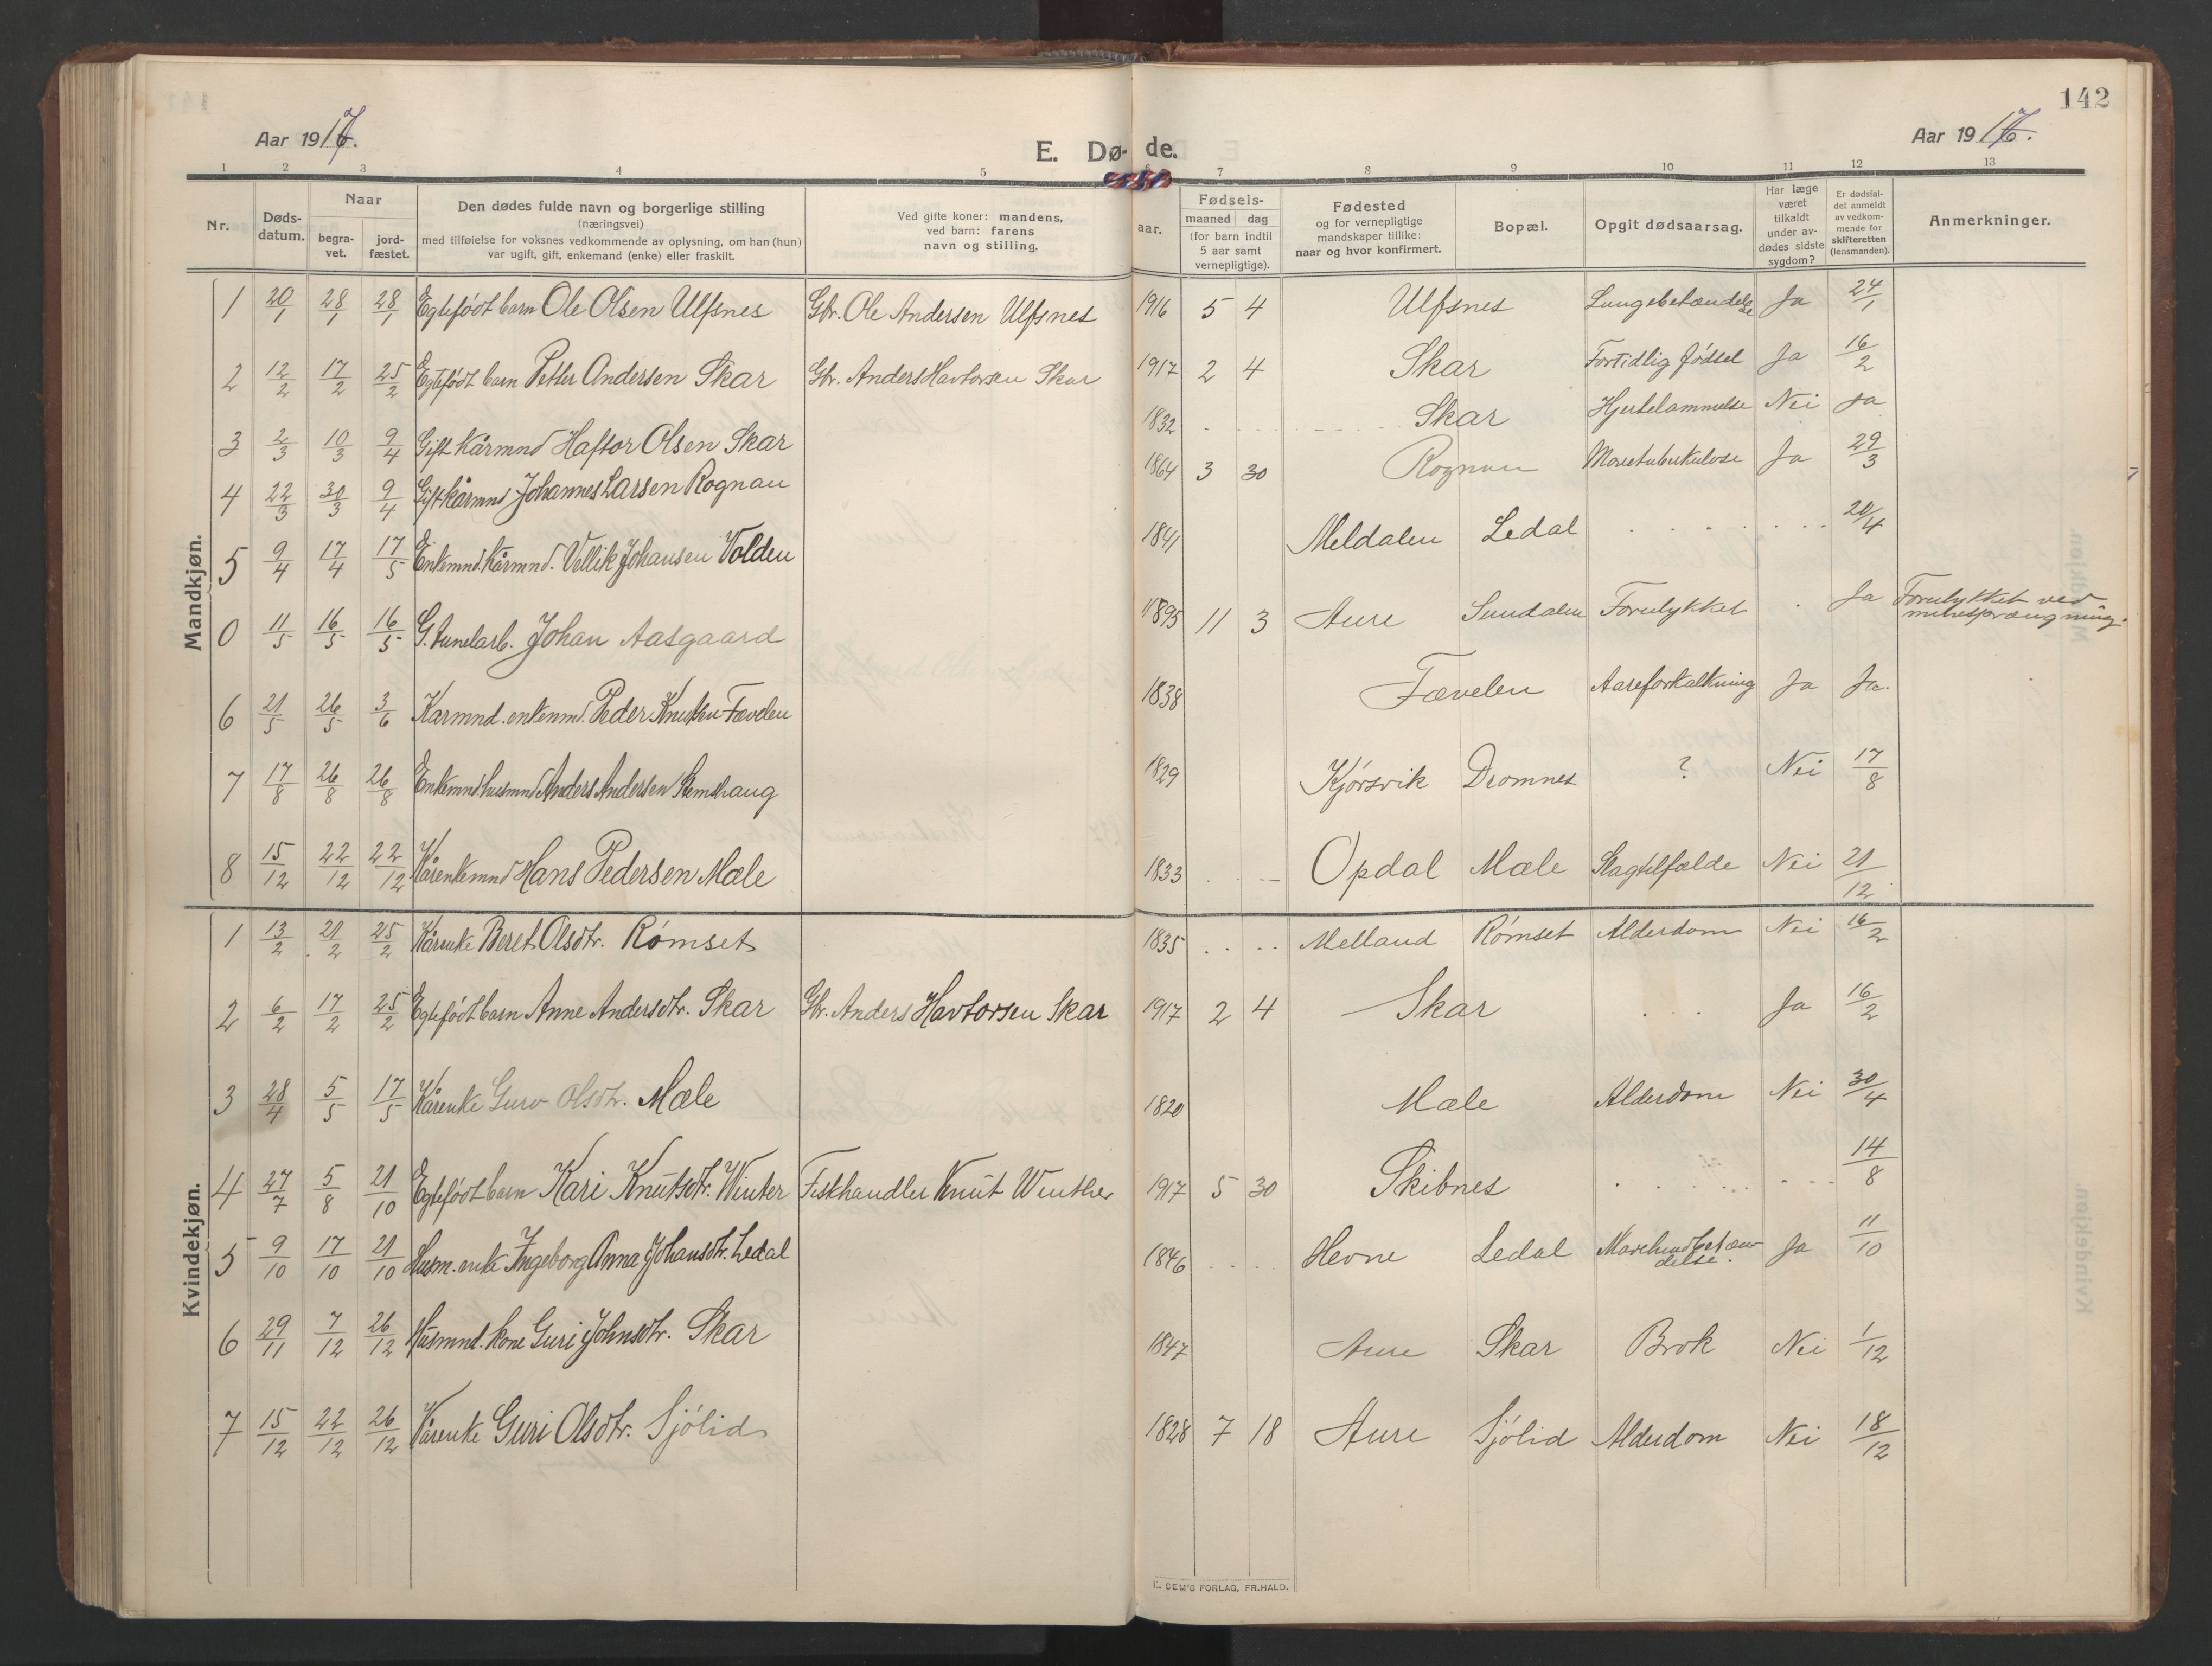 142
Aar 1917.
E. Dø- de.
Aar 1917.
1 2 3 4 5 6 7 8 9 10 11 12 13
Nr.
Døds-
datum.
Naar
begra-
vet.
jord-
fæstet.
Den dødes fulde navn og borgerlige stilling
(næringsvei)
med tilføielse for voksnes vedkommende av oplysning, om han (hun)
var ugift, gift, enkemand (enke) eller fraskilt.
Ved gifte koner: mandens,
ved barn: farens
navn og stilling.
aar.
Fødsels-
maaned dag
(for barn indtil
5 aar samt
vernepligtige).
Fødested
og for vernepligtige
mandskaper tillike:
naar og hvor konfirmert.
Bopæl.
Opgit dødsaarsag.
Har læge
været
tilkaldt
under av-
dødes sidste
sygdom?
Er dødsfal-
det anmeldt
av vedkom-
mende for
skifteretten
(lensmanden).
Anmerkninger.
Mandkjøn.
1 20/1 28/1 28/1 Egtefødt barn Ole Olsen Ulfsnes Gbr. Ole Andersen Ulfsnes 1916 5 4 Ulfsnes Lungebetændelse Ja 24/1
2 12/2 17/2 25/2 Egtefødt barn Petter Andersen Skar Gbr. Anders Havtorsen Skar 1917 2 4 Skar Fortidlig fødsel Ja 16/2
3 2/3 10/3 9/4 Gift Kårmnd Haftor Olsen Skar 1832 Skar Hjertelammelse Nei Ja
4 22/3 30/3 9/4 Gift kårmnd Johannes Larsen Rognan 1864 3 30 Rognan Mavetuberkulose Ja 29/3
5 9/4 17/4 17/5 Enkemnd. Kårmnd. Vellik Johansen Volden 1841 Meldalen Ledal 20/4
0 11/5 16/5 16/5 G. tunelarb. Johan Aasgaard 1895 11 3 Aure Sundalen Forulykket Ja Forulykket ved
minesprængning.
6 21/5 26/5 3/6 Karmnd. enkemnd. Peder Knutsen Fævelen 1838 Fævelen Aareforkalkning Ja Ja.
7 17/8 26/8 26/8 Enkemnd. husmnd Anders Andersen Stemshaug 1829 Kjørsvik Dromnes ? Nei 17/8
8 15/12 22/12 22/12 Kårenkemnd Hans Pedersen Mæle 1833 Opdal Mæle Slagtilfælde Nei 21/12
Kvindekjøn.
1 13/2 21/2 25/2 Kårenke Beret Olsdtr. Rømset 1835 Melland Rømset Alderdom Nei 16/2
2 6/2 17/2 25/2 Egtefødt barn Anne Andersdtr. Skar Gbr. Anders Havtorsen Skar 1917 2 4 Skar Ja 16/2
3 28/4 5/5 17/5 Kårenke Guro Olsdtr. Mæle 1820 Mæle Alderdom Nei 30/4
4 27/7 5/8 21/10 Egtefødt barn Kari Knutsdtr. Winter Fiskhandler Knut Winther 1917 5 30 Skibnes 14/8
5 9/10 17/10 21/10 Husm. enke Ingeborg Anna Johansdtr. Ledal 1846 Hevne Ledal Ja 11/10
6 29/11 7/12 26/12 Husmnd. kone Guri Johnsdtr. Skar 1847 Aure Skar Brok Nei 1/12
7 15/12 22/12 26/12 Kårenke Guri Olsdtr. Sjølid 1828 7 18 Aure Sjølid Alderdom Nei 18/12
E. SEM'S FORLAG, FR.HALD.